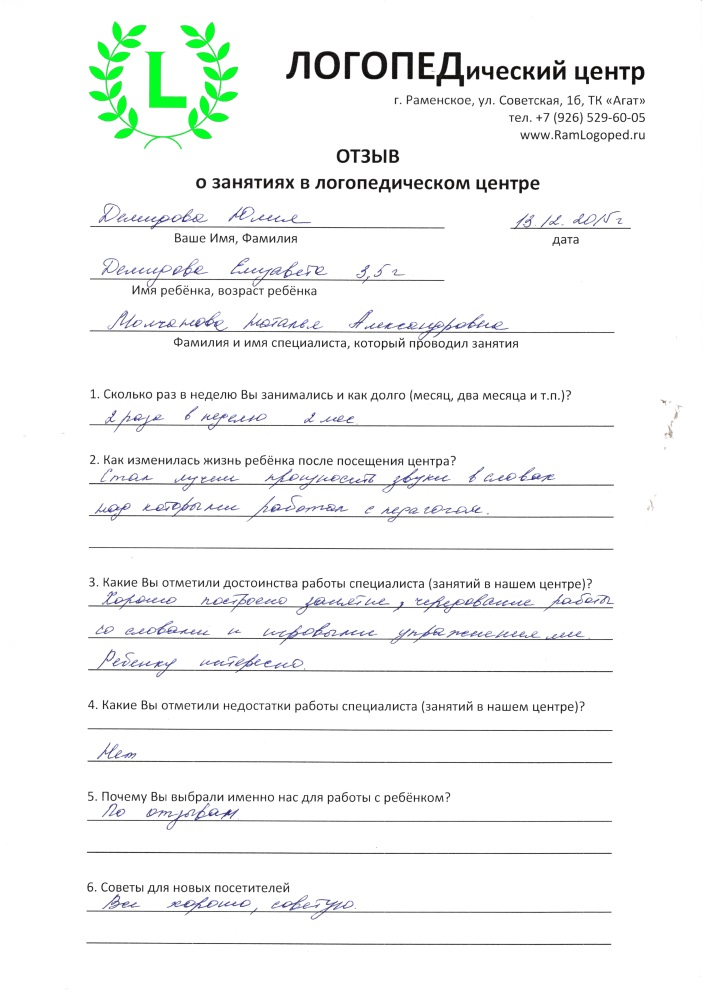 L
ЛОГОПЕДический центр
г. Раменское, ул. Советская, 1б, ТК «Агат»
тел. +7 (926) 529-60-05
www.RamLogoped.ru
ОТЗЫВ
о занятиях в логопедическом центре
Демидова Юлия 13.12.2015г
Ваше Имя, Фамилия дата
Демидова Елизавета 3,5 г
Имя ребёнка, возраст ребёнка
Молчанова Наталья Александровна
Фамилия и имя специалиста, который проводил занятия
1. Сколько раз в неделю Вы занимались и как долго (месяц, два месяца и т.п.)?
2 раза в неделю 2 мес.
2. Как изменилась жизнь ребёнка после посещения центра?
Стал лучше произносить звуки в словах
над которыми работал с педагогом.
3. Какие Вы отметили достоинства работы специалиста (занятий в нашем центре)?
Хорошо построено занятие, чередование работы
со словами и игровыми упражнениями.
Ребенку интересно.
4. Какие Вы отметили недостатки работы специалиста (занятий в нашем центре)?
Нет
5. Почему Вы выбрали именно нас для работы с ребёнком?
По отзывам
6. Советы для новых посетителей
Все хорошо, советую.